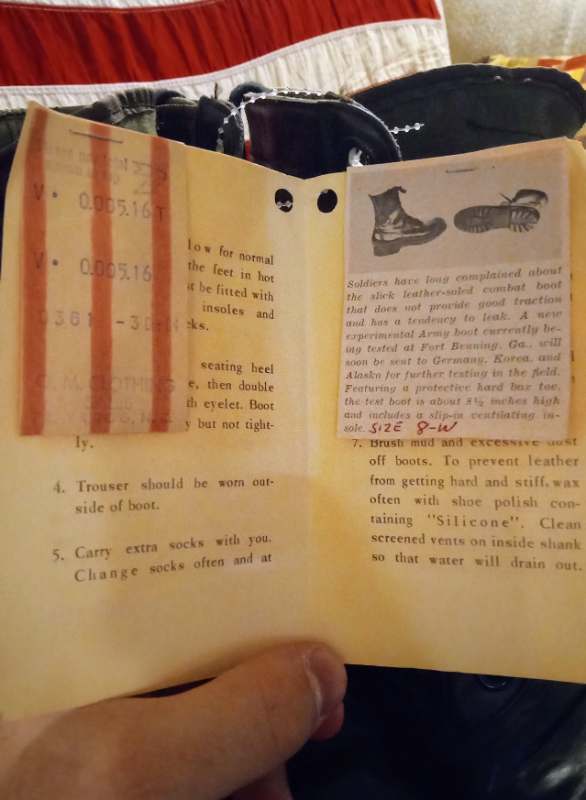 V • 0.005.16 T
V • 0.005.16
C. M. CLOTHING
low for normal
the feet in hot
t be fitted with
insoles and
ks.
seating heel
e, then double
th eyelet. Boot
y but not tight-
ly.
4. Trouser should be worn out-
side of boot.
5. Carry extra socks with you.
Change socks often and at
Soldiers have long complained about
the slick leather-soled combat boot
that does not provide good traction
and has a tendency to leak. A new
experimental Army boot currently be-
ing tested at Fort Benning, Ga., will
soon be sent to Germany, Korea, and
Alaska for further testing in the field.
Featuring a protective hard box toe,
the test boot is about 8½ inches high
and includes a slip-in ventilating in-
sole. SIZE 8-W
7. Brush mud and excessive dust
off boots. To prevent leather
from getting hard and stiff, wax
often with shoe polish con-
taining "Silicone". Clean
screened vents on inside shank
so that water will drain out.